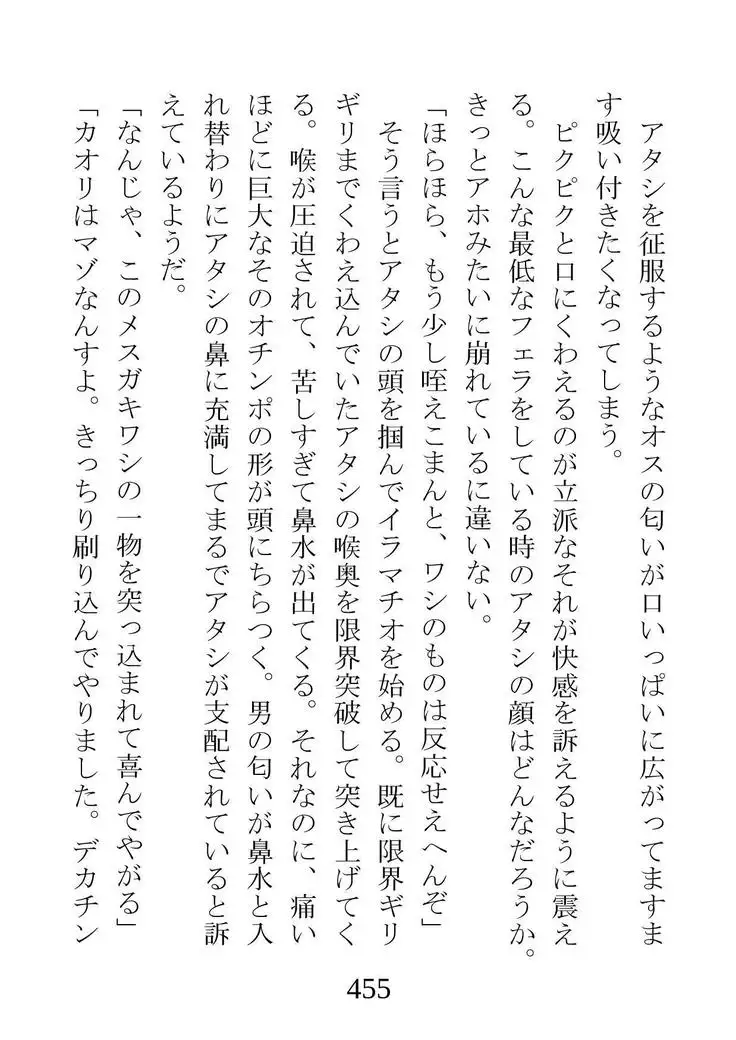 アタシを征服するようなオスの匂いが口いっぱいに広がってますま
す吸い付きたくなってしまう。
ピクピクと口にくわえるのが立派なそれが快感を訴えるように震え
る。こんな最低なフェラをしている時のアタシの顔はどんなだろうか。
きっとアホみたいに崩れているに違いない。
「ほらほら、もう少し咥えこまんと、ワシのものは反応せえへんぞ」
そう言うとアタシの頭を掴んでイラマチオを始める。既に限界ギリ
ギリまでくわえ込んでいたアタシの喉奥を限界突破して突き上げてく
る。喉が圧迫されて、苦しすぎて鼻水が出てくる。それなのに、痛い
ほどに巨大なそのオチンポの形が頭にちらつく。男の匂いが鼻水と入
れ替わりにアタシの鼻に充満してまるでアタシが支配されていると訴
えているようだ。
「なんじゃ、このメスガキワシの一物を突っ込まれて喜んでやがる」
「カオリはマゾなんすよ。きっちり刷り込んでやりました。デカチン
455